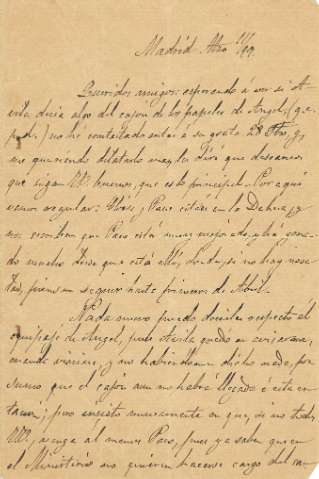 Madrid 11/99
Queridos amigos: esperando á ver si A-
vila decía algo del cajon de los papeles de Angel (q.e.
p.d.) no he contestado antes á su grata 28 y
no queriendo dilatarlo mas, les diré que deseamos
que sigan Vds. buenos, que es lo principal. Por aquí
vamos regular: y Paco están en la Dehesa, y
nos escriben que Paco está muy mejorado, y ha gana-
do mucho desde que está allí, donde, si no hay nove-
dad, piensan seguir hasta primeros de Abril.
Nada nuevo puedo decirles respecto al
equipaje de Angel, pues Avila quedó en avisarme,
cuando viniera, y no habiéndome dicho nada, pre-
sumo que el cajón aun no habrá llegado á esta es-
tación; pero insisto nuevamente en que, si no todos
Vds., venga al menos Paco, pues ya saben que en
el Ministerio no quieren hacerse cargo del